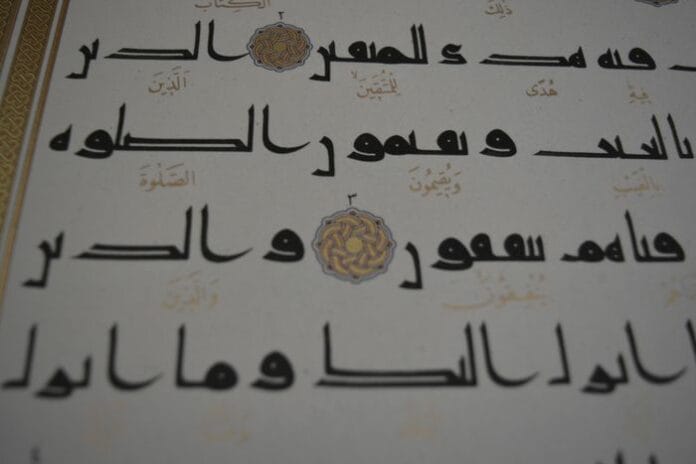 ذَلِكَ الْكِتَابُ
فيه هدى للمتقين ٢ الذين
فِيهِ هُدًى لِلْمُتَّقِينَ الَّذِينَ
بالغيب و يقيمون الصلوة
بِالْغَيْبِ وَيُقِيمُونَ الصَّلَوةَ
قناهم ينفقون ٣ و الذين
يُنْفِقُونَ وَالَّذِينَ
ا انزل اليك و ما انزل